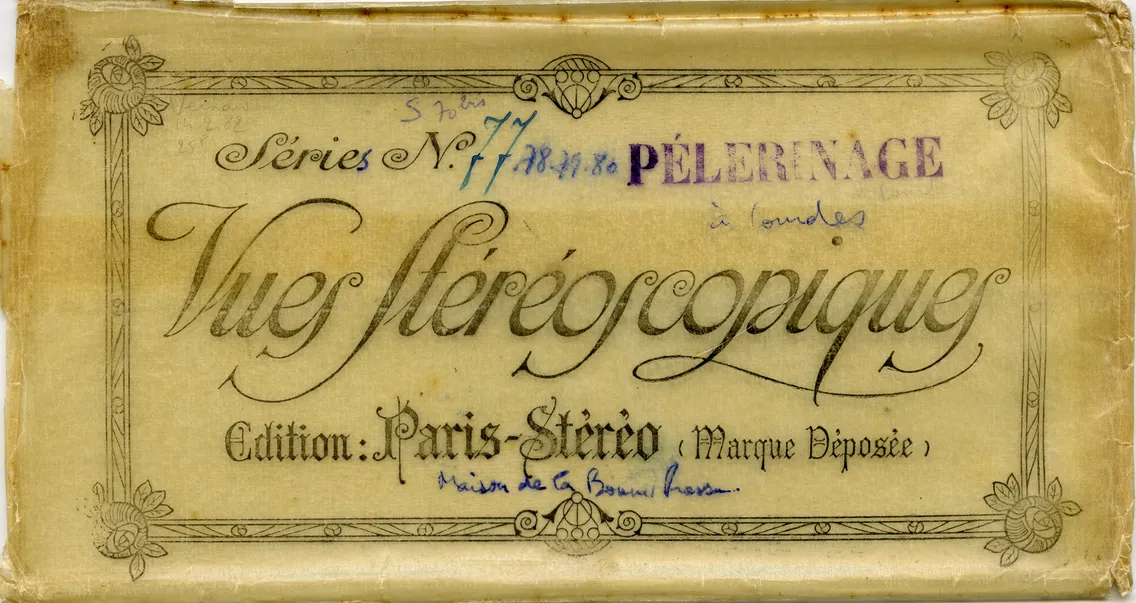 S 70 bis
Séries N. 77 .78.79.80 PÉLERINAGE
à Lourdes
Vues Stéréoscopiques
Edition: Paris-Stéréo (Marque Déposée)
Maison de la Bonne Presse.